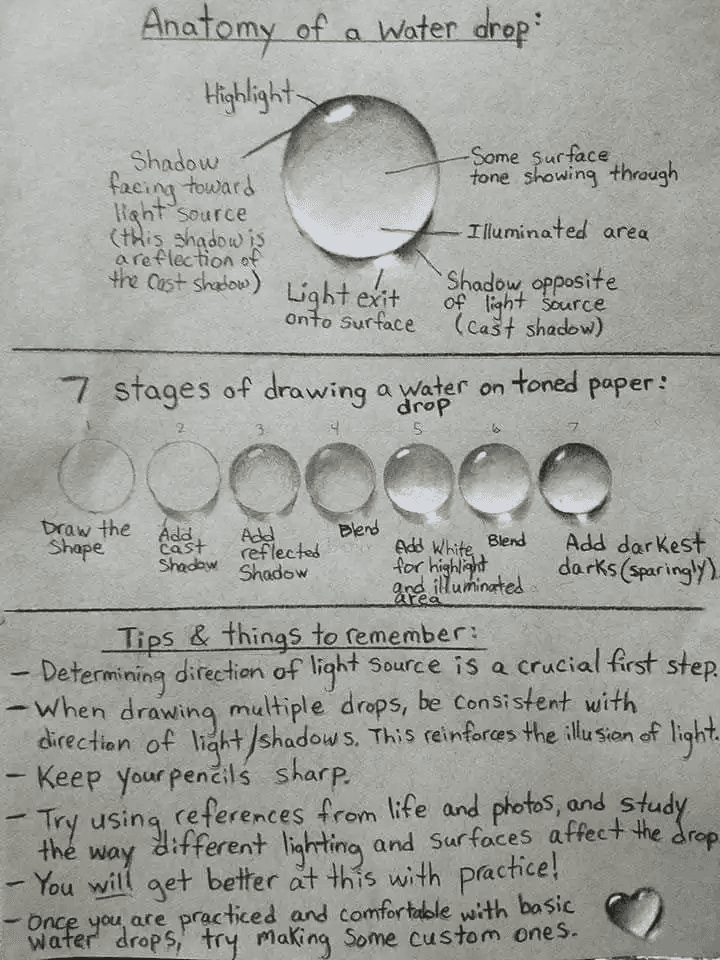 Anatomy of a Water drop:
Highlight
Shadow
facing toward
light source
(this shadow is
a reflection of
the Cast shadow)
Some surface
tone showing through
Illuminated area
Light exit
onto surface
Shadow opposite
of light source
(cast shadow)
7 stages of drawing a water drop on toned paper:
1 2 3 4 5 6 7
Draw the
Shape
Add
cast
Shadow
Add
reflected
Shadow
Blend
Add White
for highlight
and illuminated
area
Blend
Add darkest
darks (sparingly)
Tips & things to remember:
- Determining direction of light source is a crucial first step.
- When drawing multiple drops, be consistent with
direction of light/shadows. This reinforces the illusion of light.
- Keep your pencils sharp.
- Try using references from life and photos, and study
the way different lighting and surfaces affect the drop
- You will get better at this with practice!
- Once you are practiced and comfortable with basic
water drops, try making some custom ones.